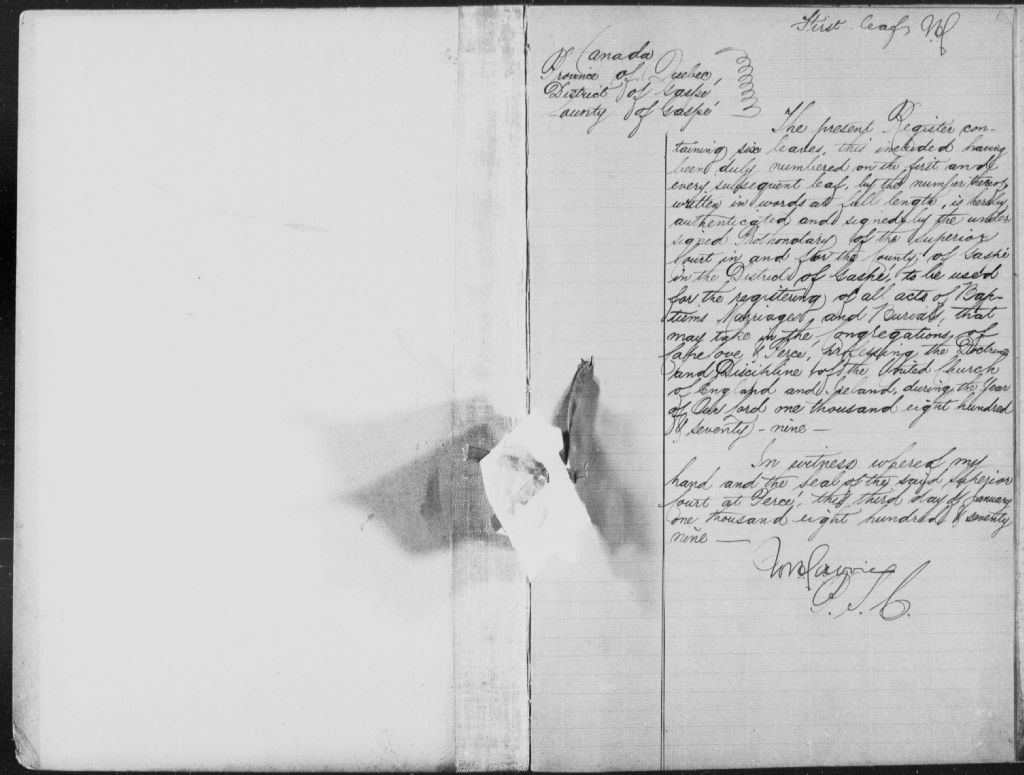 First leaf
Canada
Province of Quebec,
District of Gaspé
County of Gaspé
The present Register con-
taining six leaves, this included having
been duly numbered on the first and
every subsequent leaf, by the number thereof,
written in words at full length, is hereby
authenticated and signed by the under
signed Prothonotary of the Superior
Court in and for the County of Gaspé
in the District of Gaspé, to be used
for the registering of all acts of Bap-
tisms Marriages, and Burials, that
may take in the Congregations, of
Cape Cove & Percé, professing the Doctrine
and Discipline of the United Church
of England and Ireland, during the Year
of Our Lord one thousand eight hundred
& seventy-nine —
In witness whereof my
hand and the seal of the said Superior
Court at Percé, this third day of January
one thousand eight hundred & seventy
nine —
P. S. C.